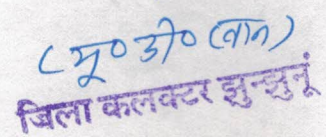 (मू० डी० खान)
जिला कलक्टर झुन्झुनूं